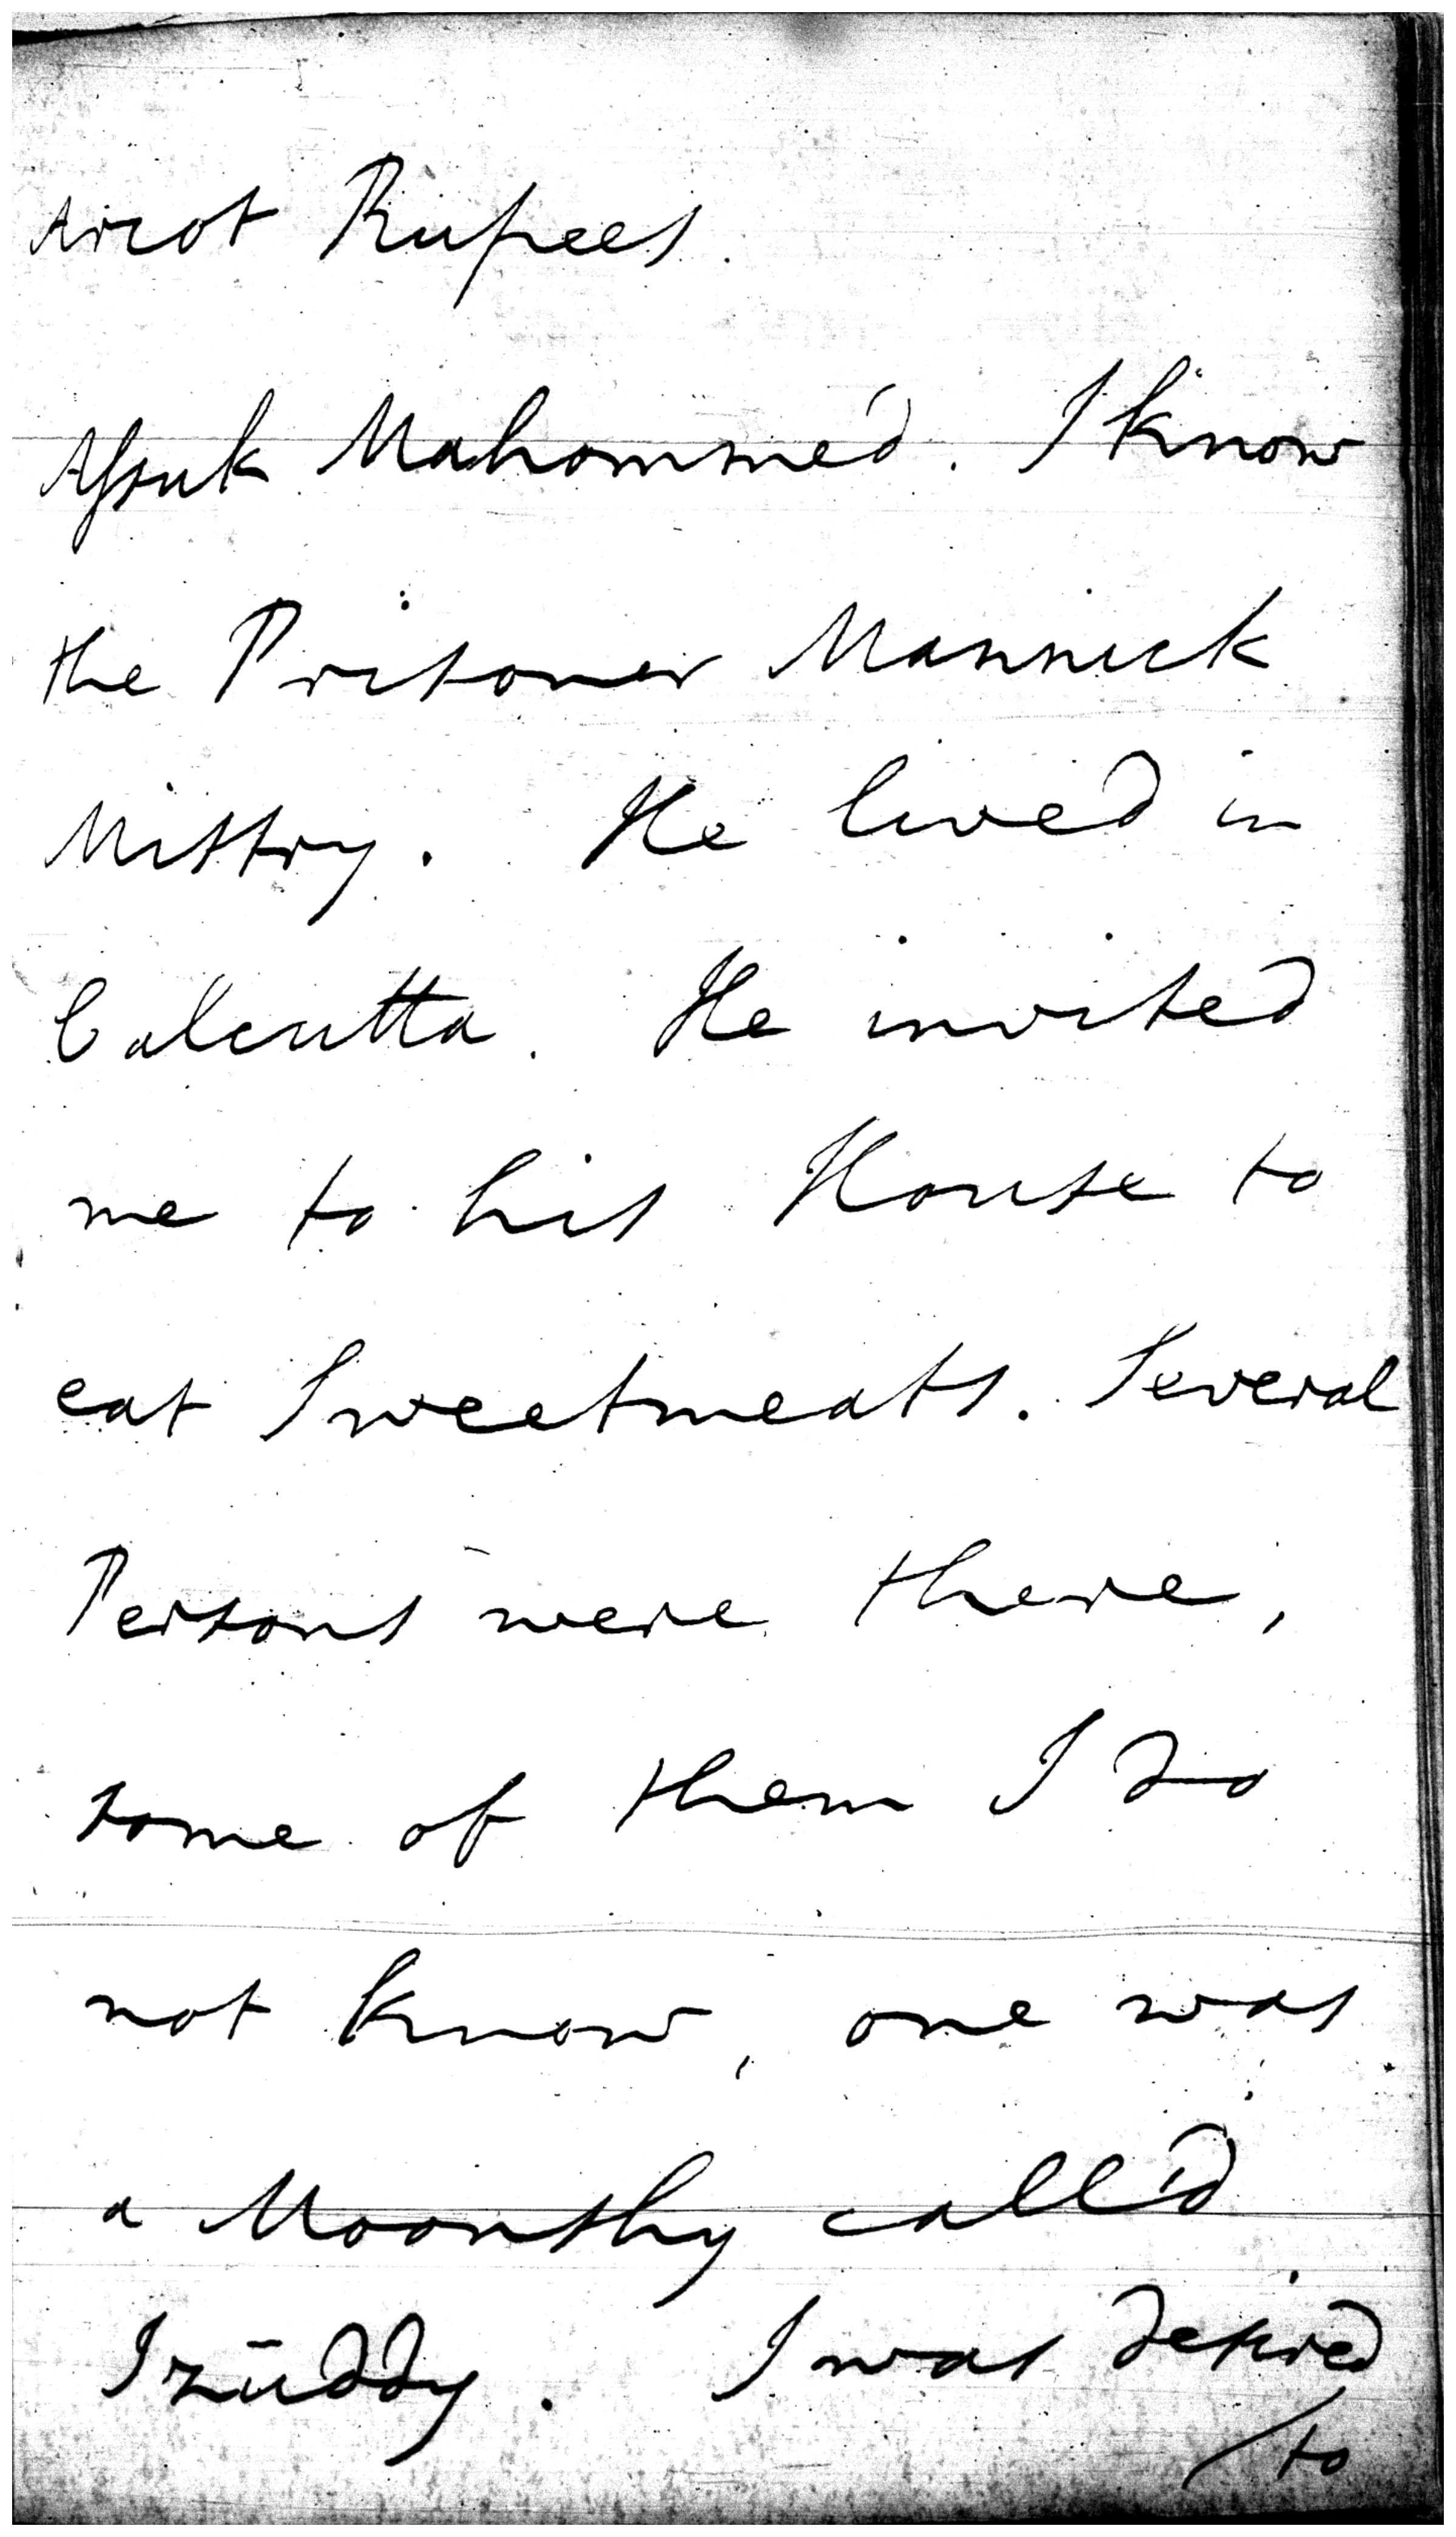 Arcot Rupees.
Assuk Mahommed. I know
the Prisoner Mannick
Mistry. He lived in
Calcutta. He invited
me to his House to
eat Sweetmeats. Several
Persons were there,
some of them I do
not know, one was
a Moonshy call'd
Izūddy. I was desired
/to